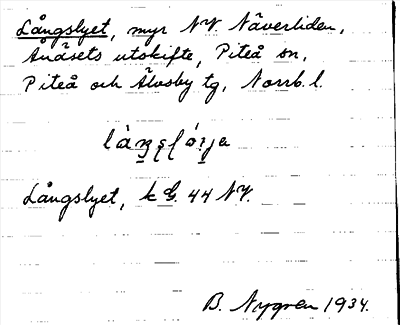 Långslyet, myr NV. Näverliden,
Anåsets utskifte, Piteå sn,
Piteå och Älvsby tg, Norrb. l.
Långslyet, k G. 44 NV.
B. Nygren 1934.